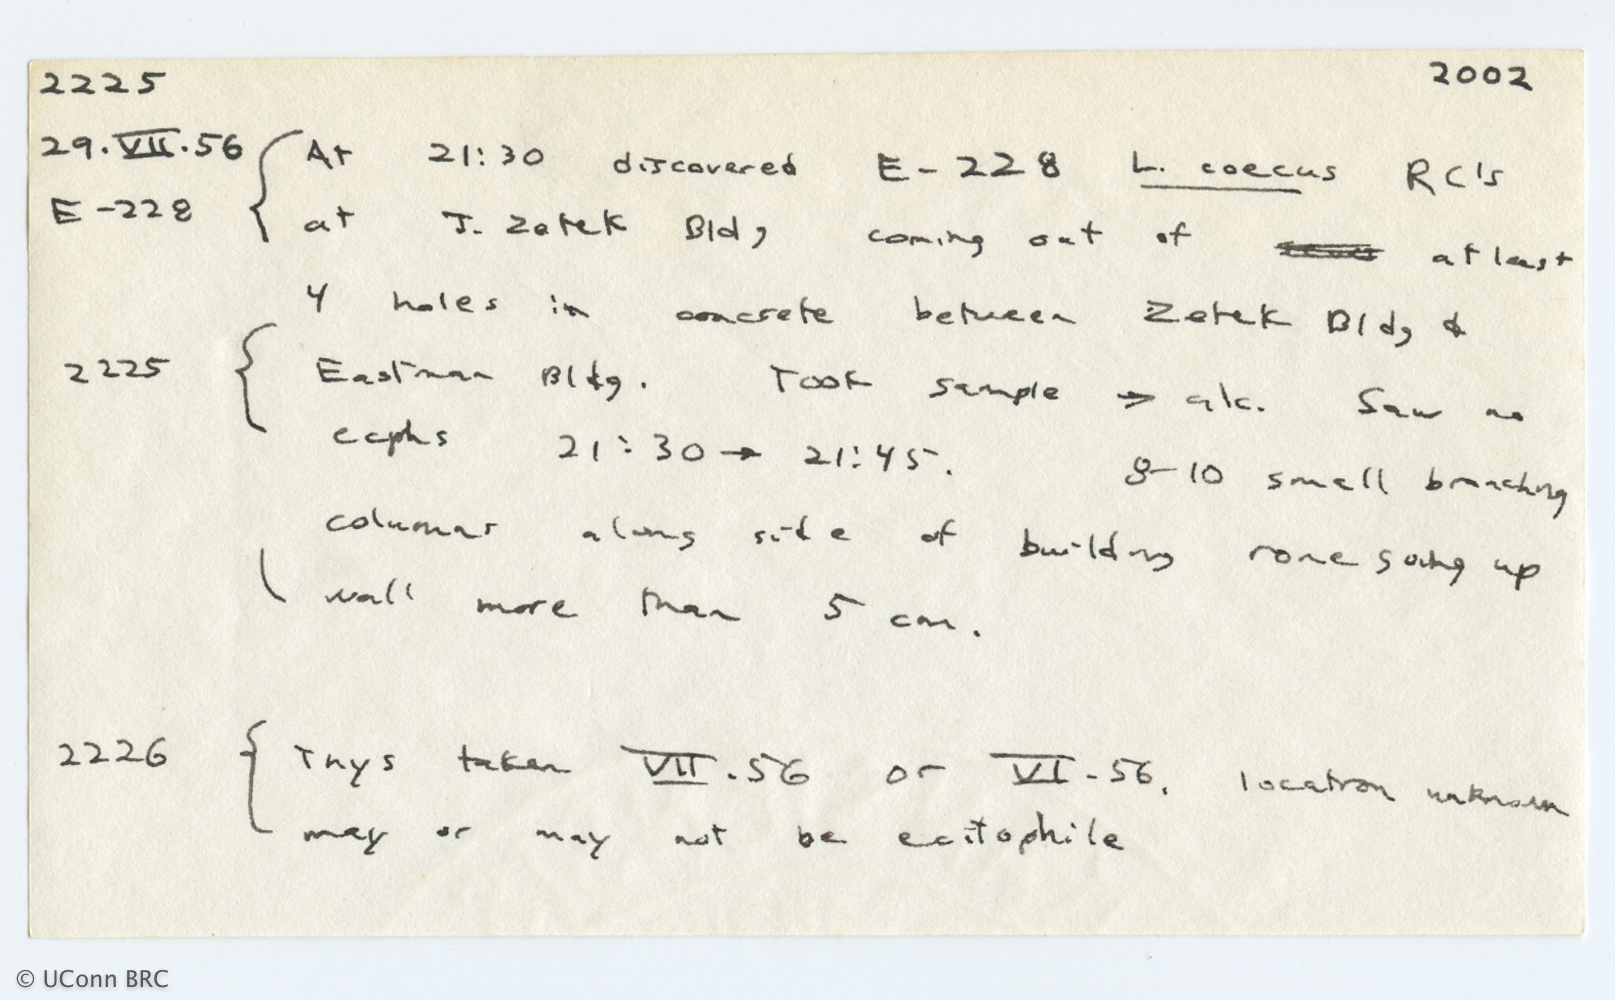 2225 2002
29.VII.56 At 21:30 discovered E-228 L. coecus RC's
E-228 at J. Zetek Bldg coming out of at least
4 holes in concrete between Zetek Bldg &
2225 Eastman Bldg. Took sample → alc. Saw no
ecphs 21:30 → 21:45. 8-10 small branching
columns along side of building none going up
wall more than 5 cm.
2226 Thys taken VII.56 or VI-56. location unknown
may or may not be ecitophile
© UConn BRC